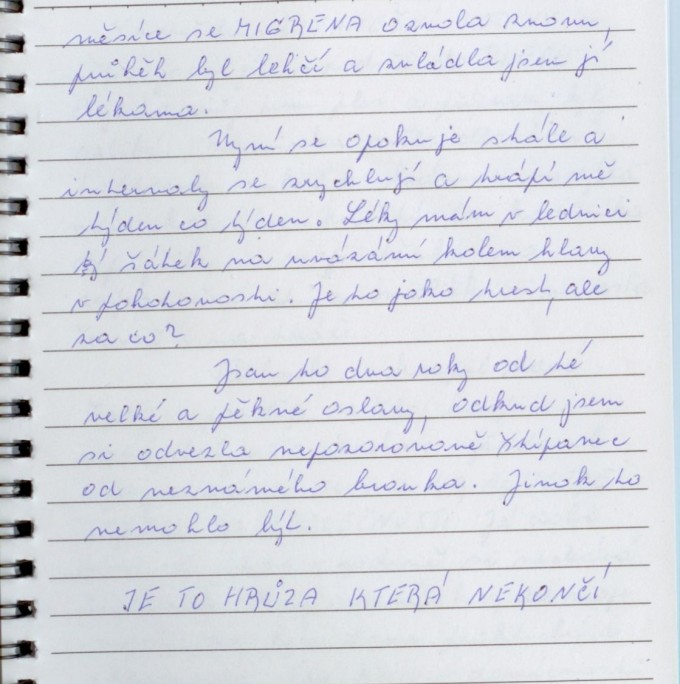 měsíce se MIGRÉNA ozvala znovu,
průběh byl lehčí a zvládla jsem jí
lékama.
Nyní se opakuje stále a
intervaly se zrychlují a trápí mě
týden co týden. Léky mám v lednici
šátek na uvázání kolem hlavy
v pohotovosti. Je to jako trest, ale
za co?
Jsou to dva roky od té
velké a pěkné oslavy, odkud jsem
si odvezla nepozorovaně štípanec
od neznámého brouka. Jinak to
nemohlo být.
JE TO HRŮZA KTERÁ NEKONČÍ